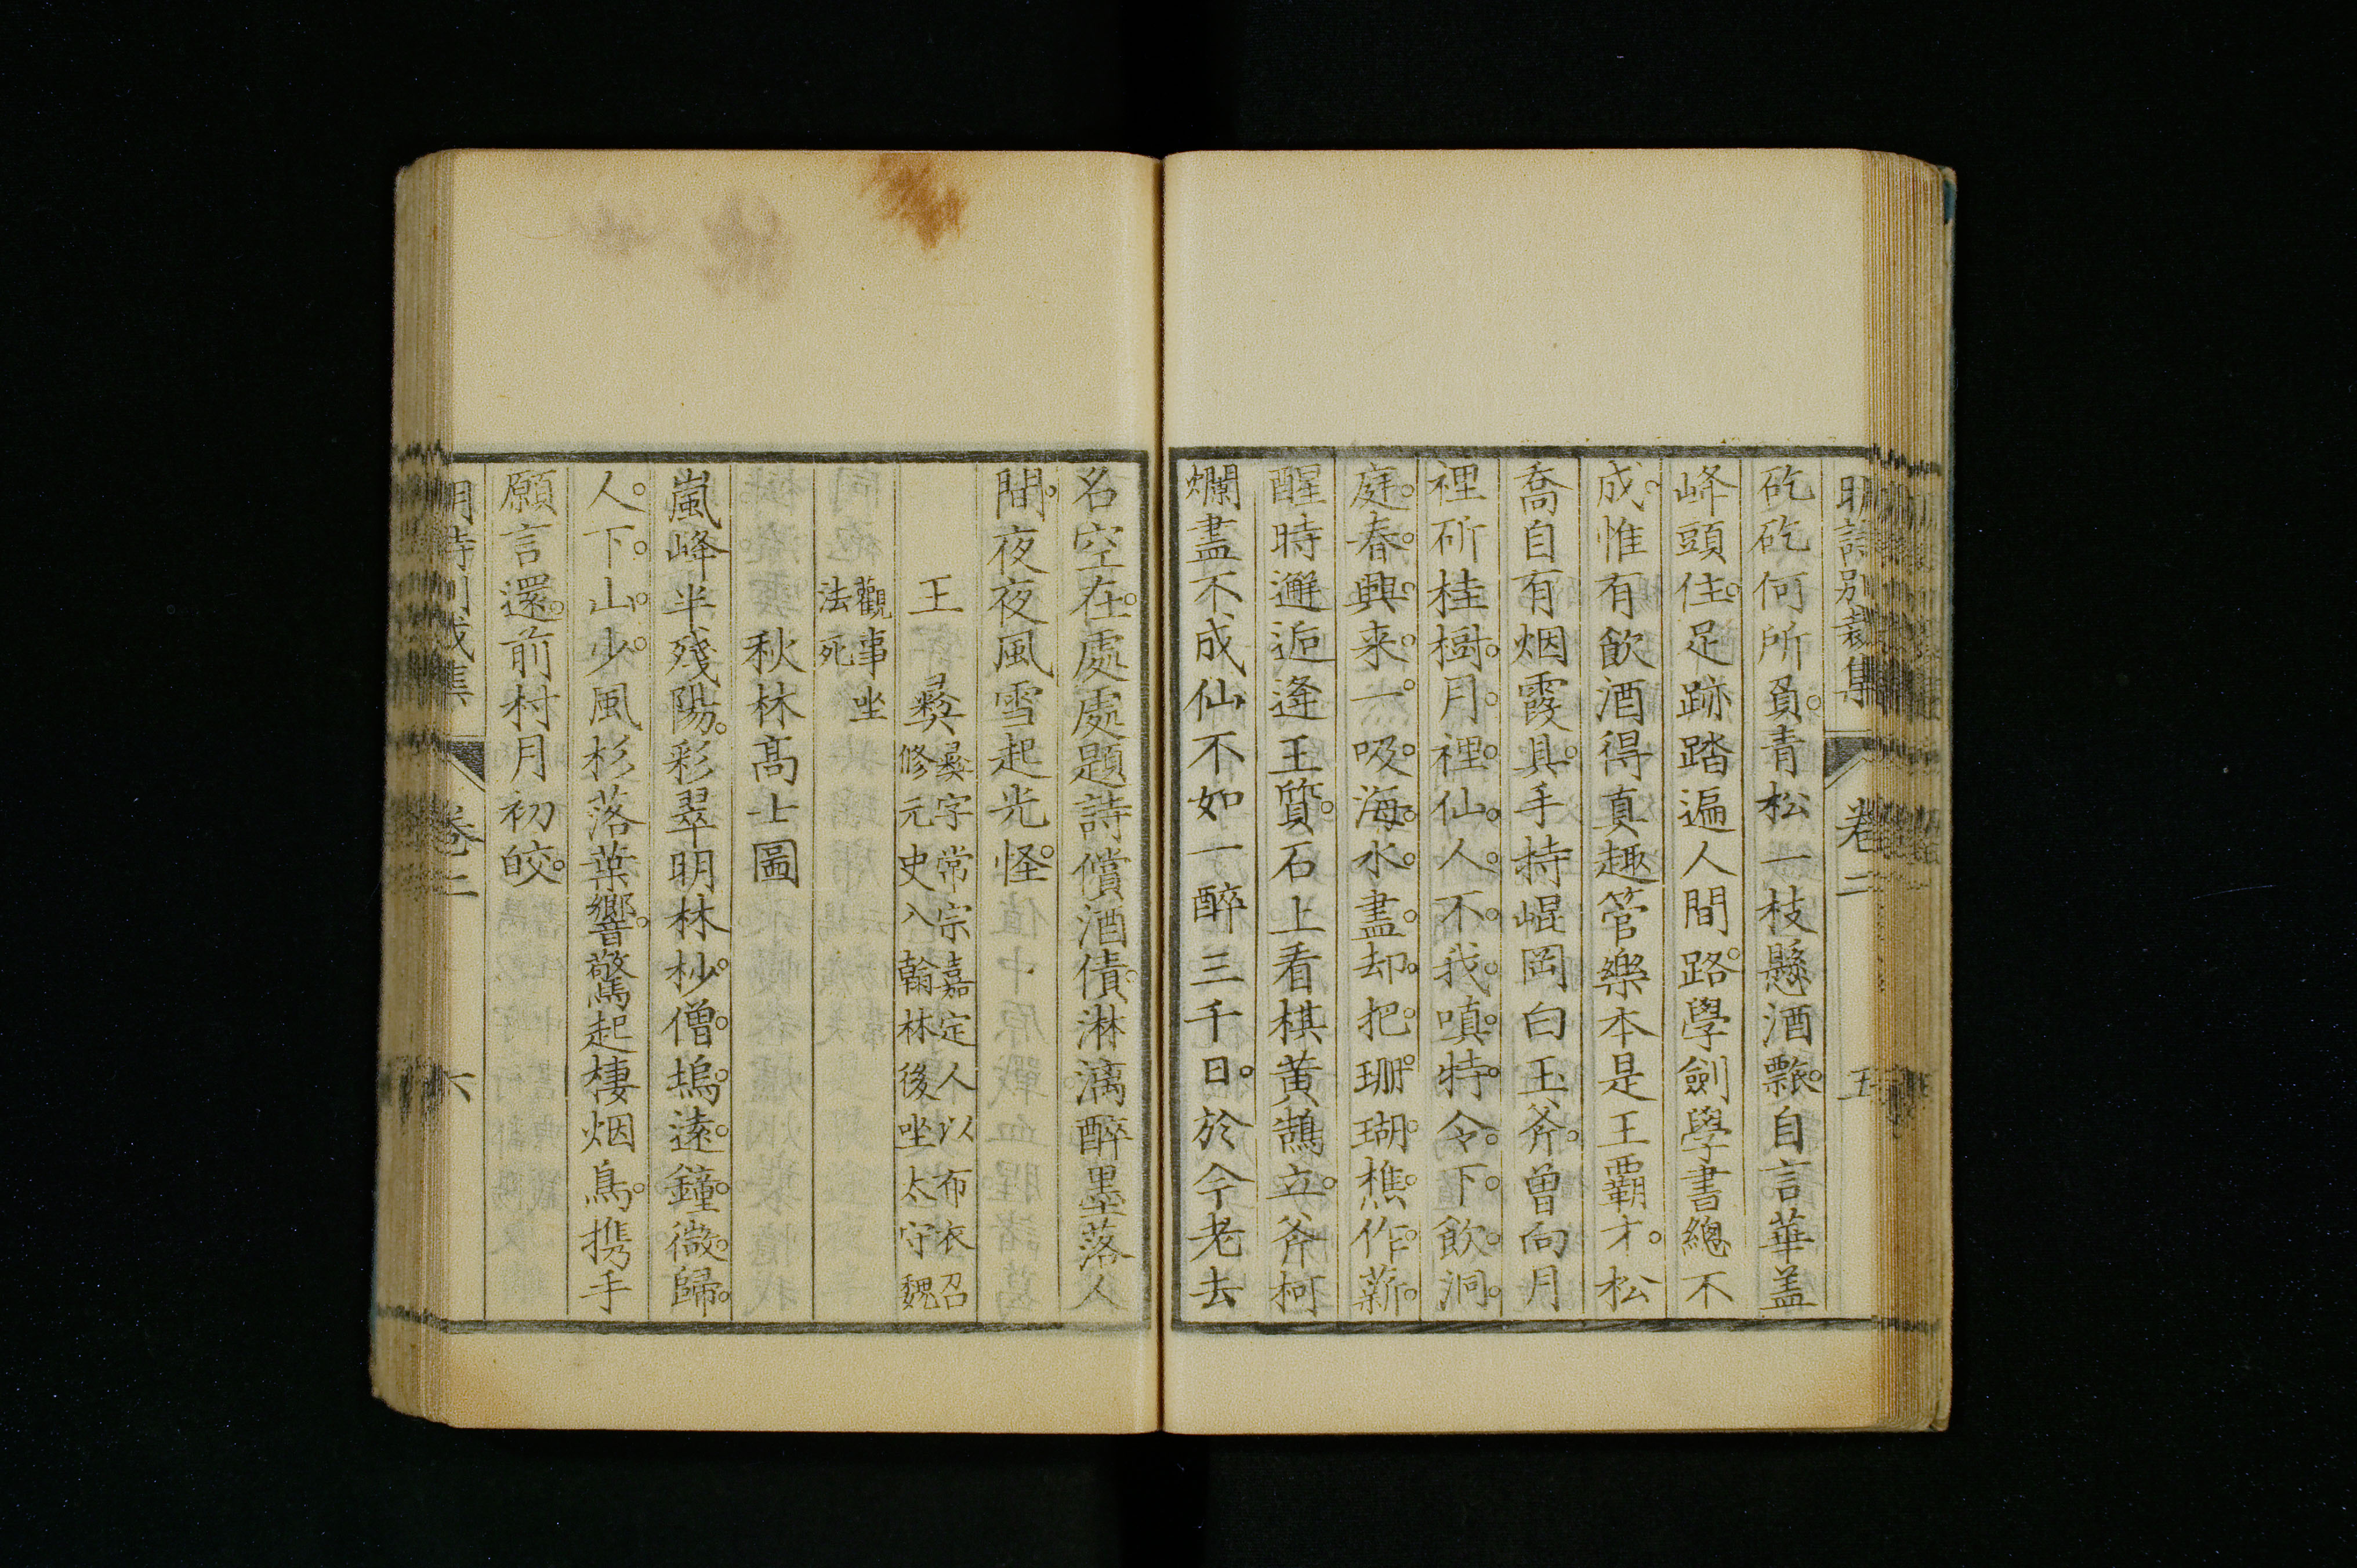 明詩別裁集 卷二 五
矻矻何所負。青松一枝懸酒瓢。自言華盖
峰頭住。足跡踏遍人間路。學劍學書總不
成。惟有飲酒得真趣管樂本是王霸才。松
喬自有烟霞具。手持崐岡白玉斧。曾向月
裡斫桂樹。月。裡。仙。人。不。我。嗔。特。令。下。飲。洞。
庭。春。興。来。一。吸。海。水。盡。却。把。珊。瑚。樵。作。薪。
醒時邂逅逢王質。石上看棋黃鵠立。斧柯
爛盡不成仙不如一醉三千日。於今老去
名空在。處處題詩償酒債。淋漓醉墨落人
間。夜夜風雪起光怪。
王彝 彝字常宗嘉定人以布衣召
修元史入翰林後坐太守魏
觀事坐
法死
秋林高士圖
嵐峰半殘陽。彩翠明林杪。僧。塢。遠。鐘。微。歸。
人。下。山。少。風杉落葉響。驚起棲烟鳥。攜手
願言還。前村月初皎。
明詩別裁集 卷二 六